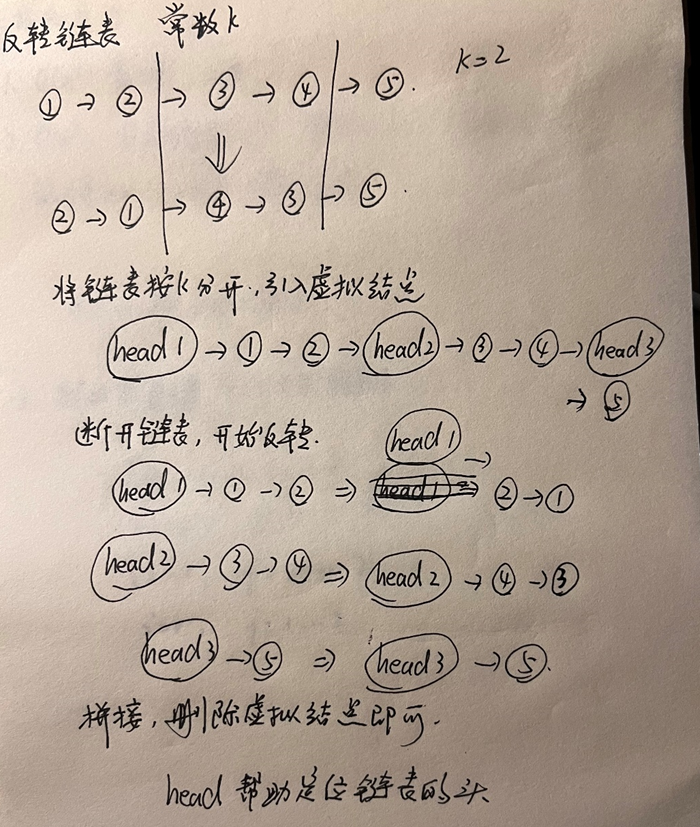 反转链表 常数k
① → ② → ③ → ④ → ⑤. k=2
⇓
② → ① → ④ → ③ → ⑤.
将链表按k分开,引入虚拟结点
head1 → ① → ② → head2 → ③ → ④ → head3
→ ⑤
断开链表,开始反转.
head1 → ① → ② ⇒ head1 → ② → ①
head2 → ③ → ④ ⇒ head2 → ④ → ③
head3 → ⑤ ⇒ head3 → ⑤.
拼接,删除虚拟结点即可.
head 帮助定位链表的头